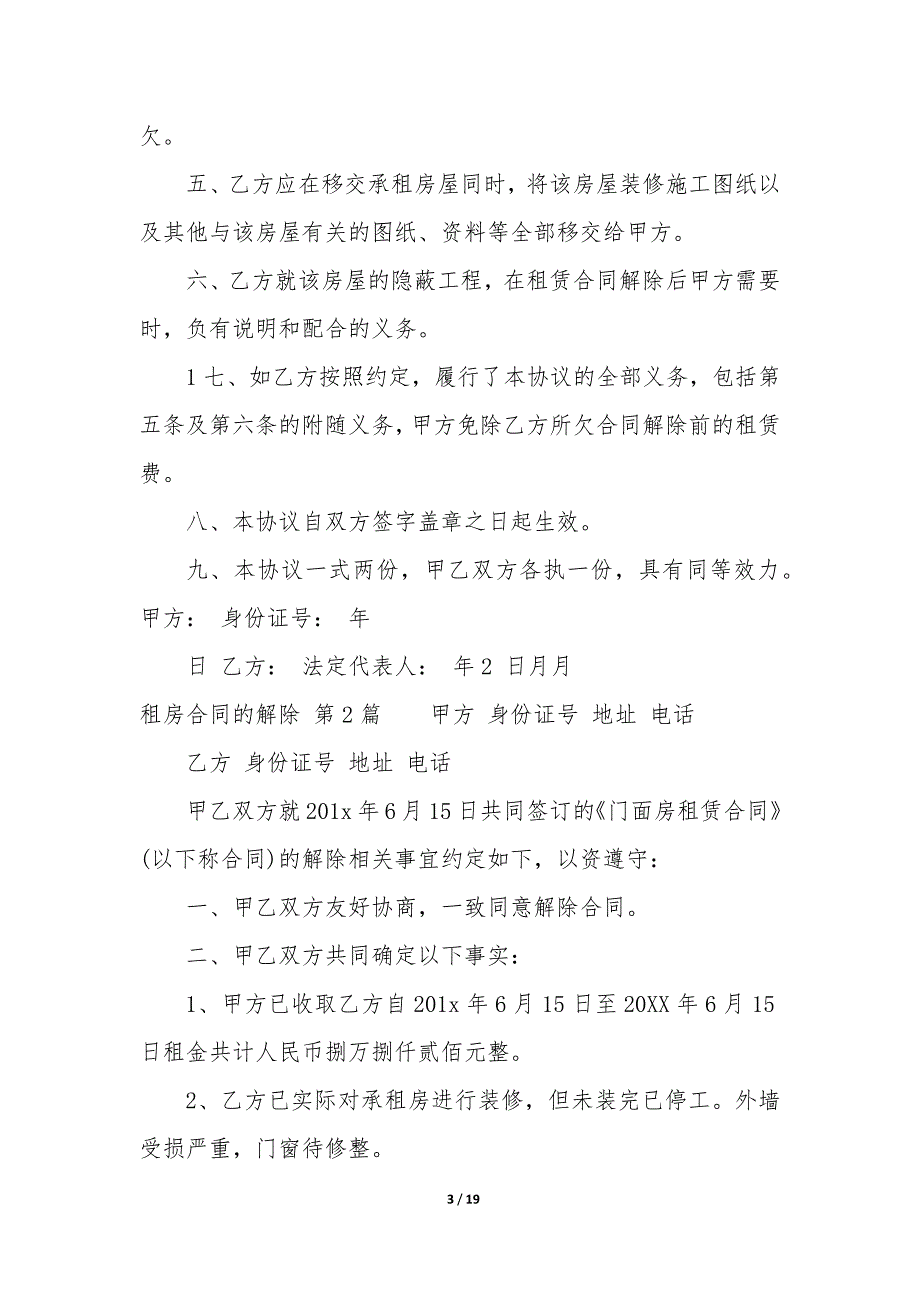 欠。
五、乙方应在移交承租房屋同时，将该房屋装修施工图纸以
及其他与该房屋有关的图纸、资料等全部移交给甲方。
六、乙方就该房屋的隐蔽工程，在租赁合同解除后甲方需要
时，负有说明和配合的义务。
1 七、如乙方按照约定，履行了本协议的全部义务，包括第
五条及第六条的附随义务，甲方免除乙方所欠合同解除前的租赁
费。
八、本协议自双方签字盖章之日起生效。
九、本协议一式两份，甲乙双方各执一份，具有同等效力。
甲方： 身份证号： 年
日 乙方： 法定代表人： 年 2 日月月
租房合同的解除 第 2 篇 甲方 身份证号 地址 电话
乙方 身份证号 地址 电话
甲乙双方就 201x 年 6 月 15 日共同签订的《门面房租赁合同》
(以下称合同)的解除相关事宜约定如下，以资遵守：
一、甲乙双方友好协商，一致同意解除合同。
二、甲乙双方共同确定以下事实：
1、甲方已收取乙方自 201x 年 6 月 15 日至 20XX 年 6 月 15
日租金共计人民币捌万捌仟贰佰元整。
2、乙方已实际对承租房进行装修，但未装完已停工。外墙
受损严重，门窗待修整。
3 / 19